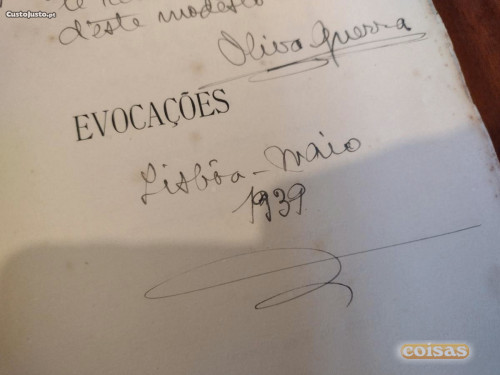 CustoJusto.pt
d'este modesto
Oliva Guerra
EVOCAÇÕES
Lisbôa - Maio
1939
coisas